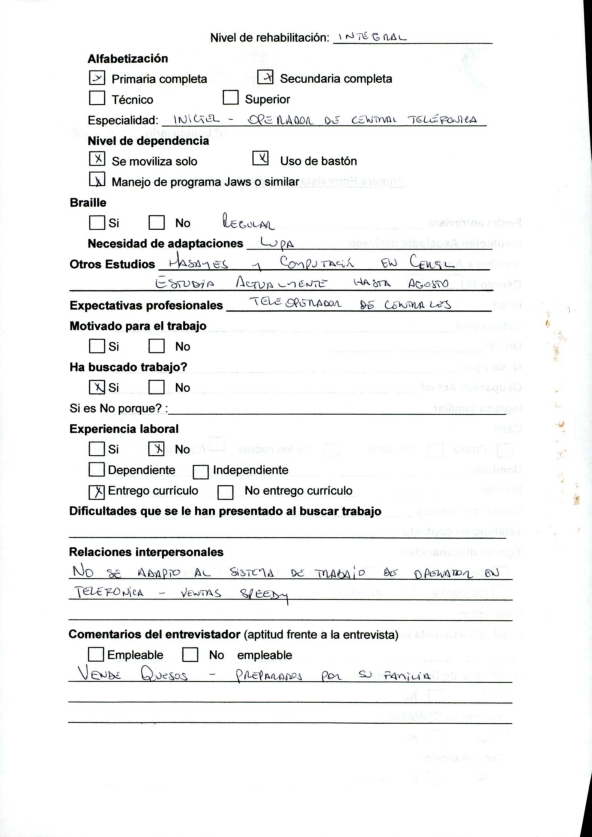 Nivel de rehabilitación: INTEGRAL
Alfabetización
☒ Primaria completa ☒ Secundaria completa
☐ Técnico ☐ Superior
Especialidad: INICTEL - OPERADOR DE CENTRAL TELEFONICA
Nivel de dependencia
☒ Se moviliza solo ☒ Uso de bastón
☒ Manejo de programa Jaws o similar
Braille
☐ Si ☐ No REGULAR
Necesidad de adaptaciones LUPA
Otros Estudios MASAJES Y COMPUTACIÓN EN
ESTUDIA ACTUALMENTE HASTA AGOSTO
Expectativas profesionales TELEOPERADOR DE CENTRALES
Motivado para el trabajo
☐ Si ☐ No
Ha buscado trabajo?
☒ Si ☐ No
Si es No porque? :
Experiencia laboral
☐ Si ☒ No
☐ Dependiente ☐ Independiente
☒ Entrego currículo ☐ No entrego currículo
Dificultades que se le han presentado al buscar trabajo
Relaciones interpersonales
NO SE ADAPTO AL SISTEMA DE TRABAJO DE OPERADOR EN
TELEFONICA - VENTAS SPEEDY
Comentarios del entrevistador (aptitud frente a la entrevista)
☐ Empleable ☐ No empleable
VENDE QUESOS - PREPARADOS POR SU FAMILIA